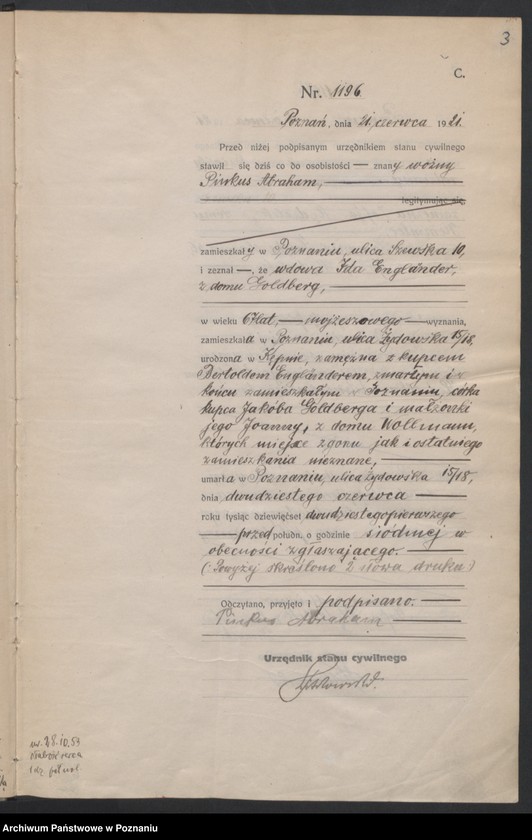 3
C.
Nr. 1196.
Poznań, dnia 21. czerwca 1921.
Przed niżej podpisanym urzędnikiem stanu cywilnego
stawił się dziś co do osobistości — znany woźny
Pinkus Abraham,
legitymując się
zamieszkały w Poznaniu, ulica Szewska 10,
i zeznał —, że wdowa Ida Engländer,
z domu Goldberg,
w wieku 67 lat, — mojżeszowego — wyznania,
zamieszkała w Poznaniu, ulica Żydowska 15/18,
urodzona w Kępnie, zamężna z kupcem
Bertoldem Engländerem, zmarłym i w
końcu zamieszkałym w Poznaniu, córka
kupca Jakóba Goldberga i małżonki
jego Joanny, z domu Wollmann,
których miejsce zgonu jak i ostatniego
zamieszkania nieznane,
umarła w Poznaniu, ulica Żydowska 15/18,
dnia dwudziestego czerwca
roku tysiąc dziewięćset dwudziestego pierwszego
przed połudn. o godzinie siódmej w
obecności zgłaszającego.
(Powyżej skreślono 2 słowa druku)
Odczytano, przyjęto i podpisano.
Pinkus Abraham
Urzędnik stanu cywilnego
28.10.53
Archiwum Państwowe w Poznaniu